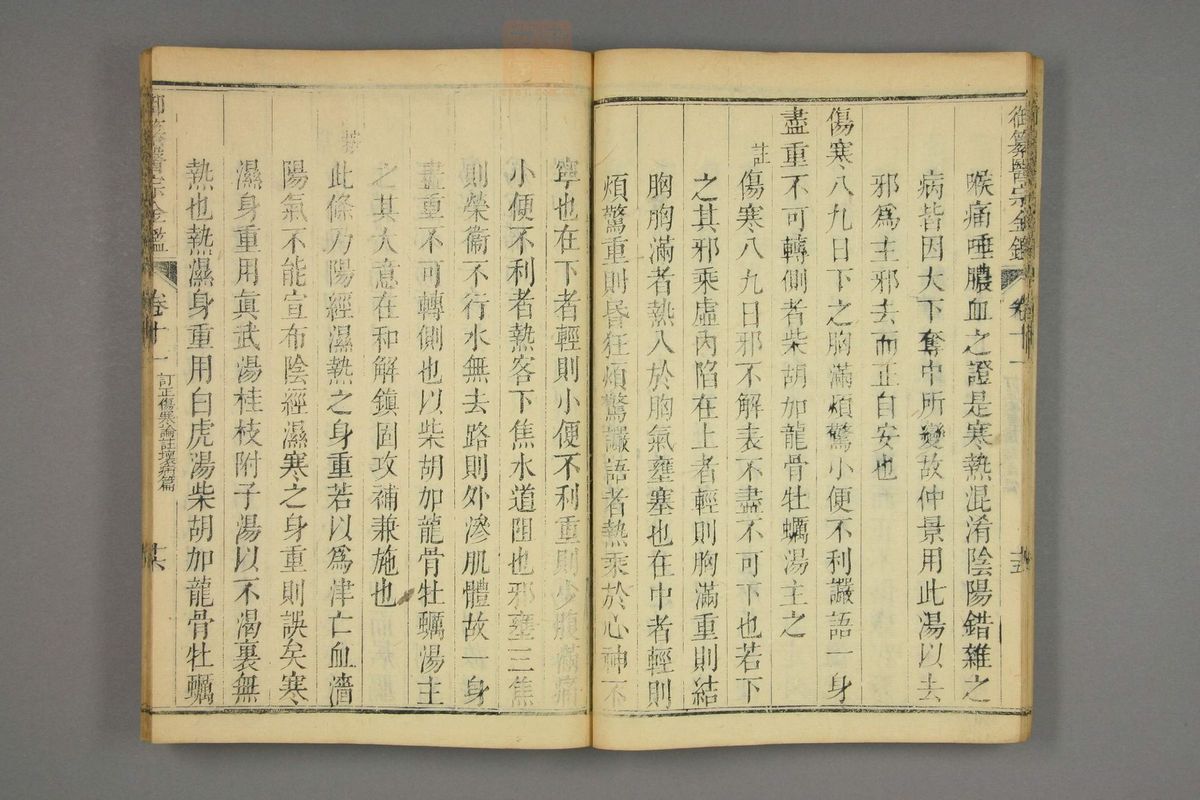 御纂醫宗金鑑 卷十一 十五
喉痛唾膿血之證是寒熱混淆陰陽錯雜之
病皆因大下奪中所變故仲景用此湯以去
邪為主邪去而正自安也
傷寒八九日下之胸滿煩驚小便不利讝語一身
盡重不可轉側者柴胡加龍骨牡蠣湯主之
註傷寒八九日邪不解表不盡不可下也若下
之其邪乘虛內陷在上者輕則胸滿重則結
胸胸滿者熱入於胸氣壅塞也在中者輕則
煩驚重則昏狂煩驚讝語者熱乘於心神不
寧也在下者輕則小便不利重則少腹滿痛
小便不利者熱客下焦水道阻也邪壅三焦
則榮衞不行水無去路則外滲肌體故一身
盡重不可轉側也以柴胡加龍骨牡蠣湯主
之其大意在和解鎮固攻補兼施也
此條乃陽經濕熱之身重若以為津亡血濇
陽氣不能宣布陰經濕寒之身重則誤矣寒
濕身重用眞武湯桂枝附子湯以不渴裏無
熱也熱濕身重用白虎湯柴胡加龍骨牡蠣
御纂醫宗金鑑 卷十一 訂正傷寒論註壞病篇 十六